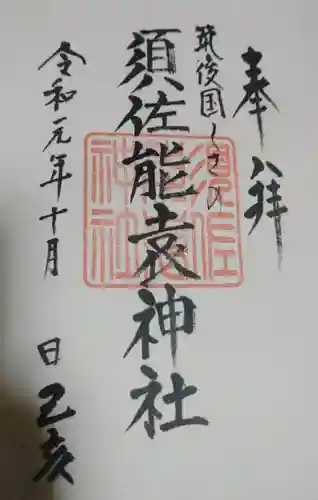 奉拝
筑後国くさの
須佐能袁神社
令和元年十月
日 己亥
須佐能袁神社